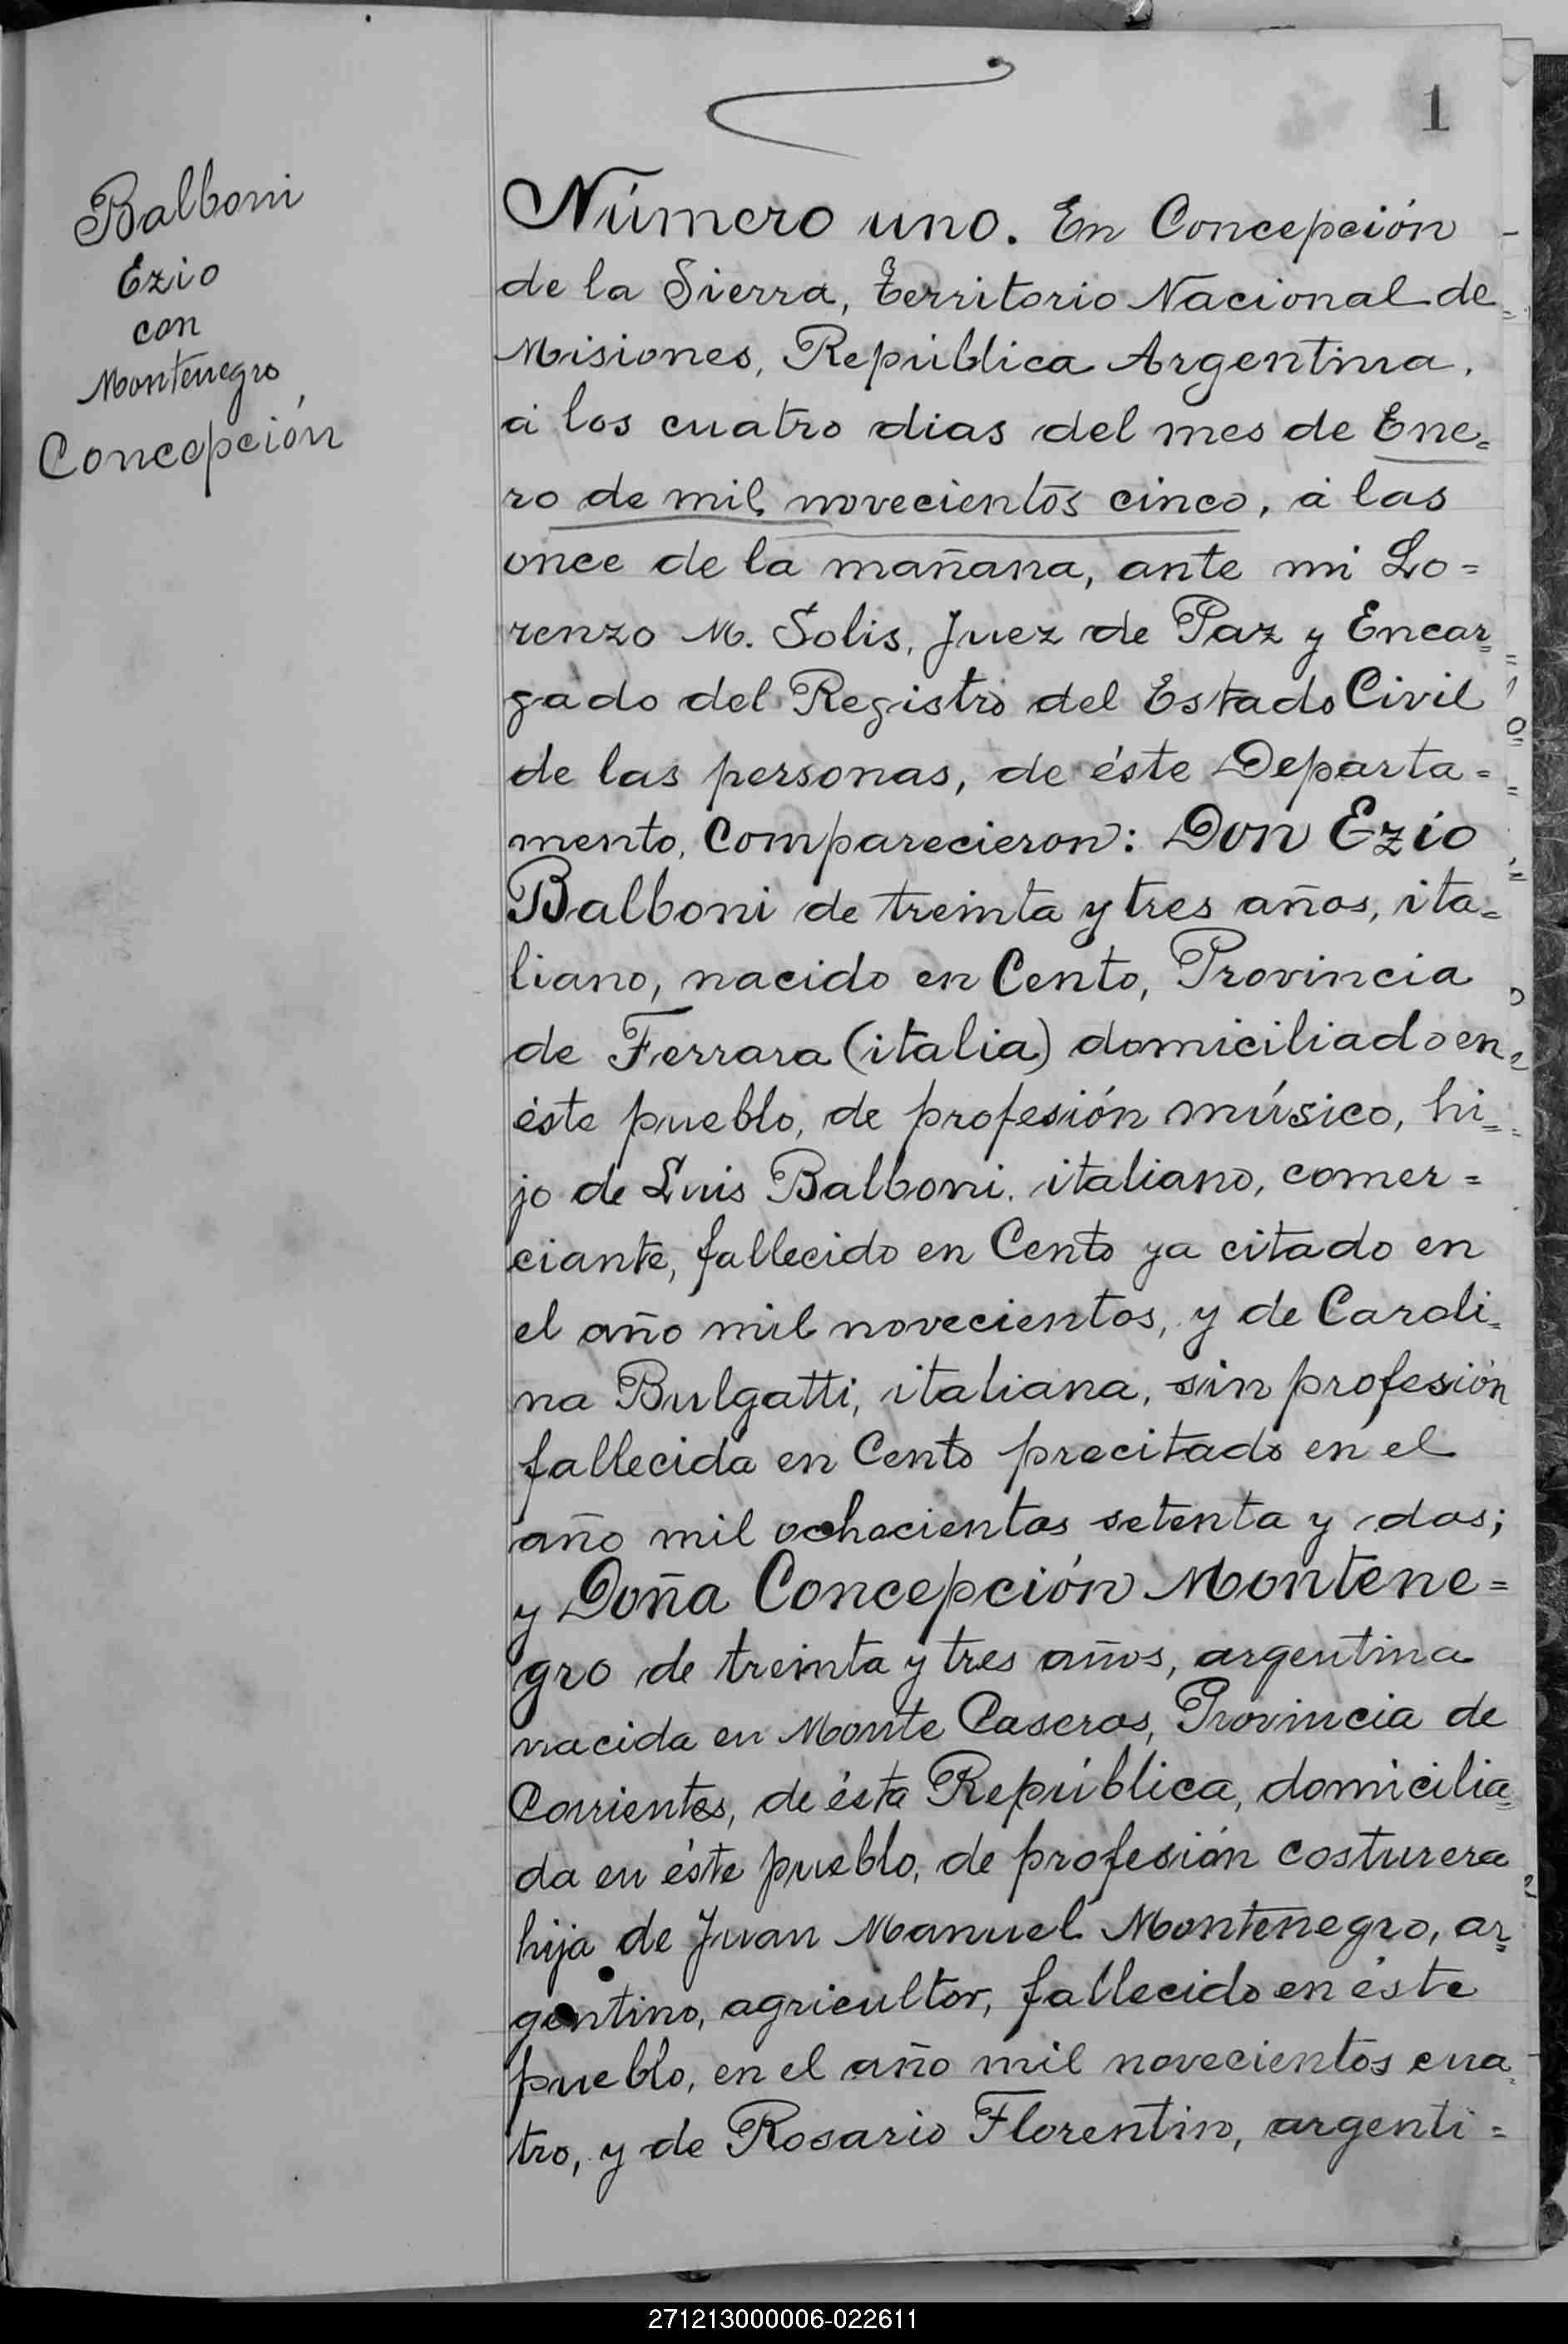 1
Balboni
Ezio
con
Montenegro,
Concepción
Número uno. En Concepción
de la Sierra, Territorio Nacional de
Misiones, República Argentina,
á los cuatro dias del mes de Ene=
ro de mil novecientos cinco, á las
once de la mañana, ante mi Lo=
renzo M. Solis, Juez de Paz y Encar=
gado del Registro del Estado Civil
de las personas, de éste Departa=
mento, Comparecieron: Don Ezio
Balboni de treinta y tres años, ita=
liano, nacido en Cento, Provincia
de Ferrara (italia) domiciliado en
éste pueblo, de profesión músico, hi=
jo de Luis Balboni, italiano, comer=
ciante, fallecido en Cento ya citado en
el año mil novecientos, y de Caroli=
na Bulgatti, italiana, sin profesión
fallecida en Cento precitado en el
año mil ochocientos setenta y dos;
y Doña Concepción Montene=
gro de treinta y tres años, argentina
nacida en Monte Caseros, Provincia de
Corrientes, de ésta República, domicilia=
da en éste pueblo, de profesión costurera
hija de Juan Manuel Montenegro, ar=
gentino, agricultor, fallecido en éste
pueblo, en el año mil novecientos cua=
tro, y de Rosario Florentin, argenti=
271213000006-022611